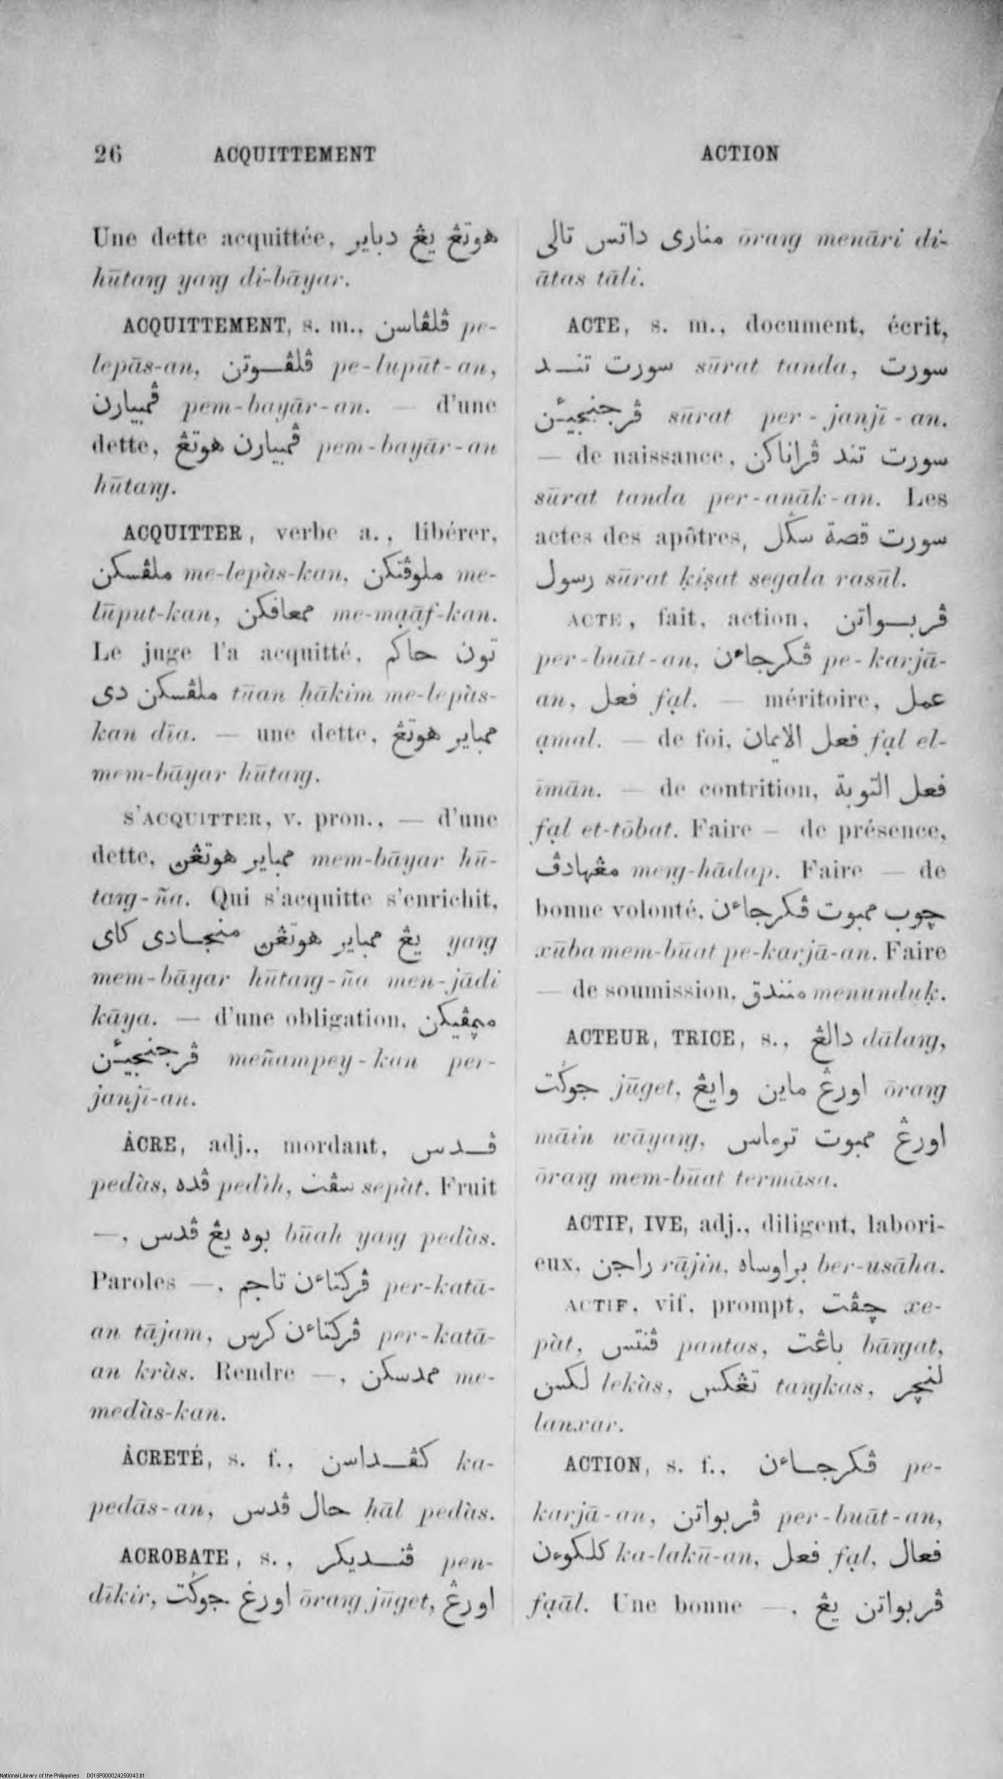 26 ACQUITTEMENT ACTION
Une dette acquittée, هوتڠ يڠ دباير
hūtaŋ yaŋ di-bāyar.
ACQUITTEMENT, s. m., ڤلڤاسن pe-
lepās-an, ڤلڤــوتن pe-lupūt-an,
ڤمبيارن pem-bayār-an. — d'une
dette, ڤمبيارن هوتڠ pem-bayār-an
hūtaŋ.
ACQUITTER, verbe a., libérer,
ملڤسكن me-lepàs-kan, ملوڤتكن me-
lūput-kan, ممعافكن me-maạ̄f-kan.
Le juge l'a acquitté, تون حاكم
ملڤسكن دى tūan ḥākim me-lepàs-
kan dīa. — une dette, ممباير هوتڠ
mem-bāyar hūtaŋ.
S'ACQUITTER, v. pron., — d'une
dette, ممباير هوتڠن mem-bāyar hū-
taŋ-ña. Qui s'acquitte s'enrichit,
يڠ ممباير هوتڠن منجــادى كاى yaŋ
mem-bāyar hūtaŋ-ña men-jādi
kāya. — d'une obligation, مڃمڤيكن
ڤرجنجيـئن meñampey-kan per-
janji-an.
ÂCRE, adj., mordant, ڤــدس
pedàs, ڤده pedìh, سڤت sepàt. Fruit
—, بوه يڠ ڤدس būah yaŋ pedàs.
Paroles —, ڤركتاءن تاجم per-katā-
an tājam, ڤركتاءن كرس per-katā-
an kràs. Rendre —, ممدسكن me-
medàs-kan.
ÂCRETÉ, s. f., كڤــداسن ka-
pedās-an, حال ڤدس ḥāl pedàs.
ACROBATE, s., ڤنــديكر pen-
dīkir, اورڠ جوݢت ōraŋ jūget, اورڠ
منارى داتس تالى ōraŋ menāri di-
ātas tāli.
ACTE, s. m., document, écrit,
سورت تنــد sūrat tanda, سورت
ڤرجنجيـئن sūrat per-janjī-an.
— de naissance, سورت تند ڤراناكن
sūrat tanda per-anāk-an. Les
actes des apôtres, سورت قصة سݢل
رسول sūrat ḳiṣat segala rasūl.
ACTE, fait, action, ڤربــواتن
per-buāt-an, ڤكرجاءن pe-karjā-
an, فعل fạl. — méritoire, عمل
ạmal. — de foi, فعل الايمان fạl el-
īmān. — de contrition, فعل التوبة
fạl et-tōbat. Faire — de présence,
مڠهادڤ meŋ-hādap. Faire — de
bonne volonté, چوب ممبوت ڤكرجاءن
xūba mem-būat pe-karjā-an. Faire
— de soumission, مننندق menunduḳ.
ACTEUR, TRICE, s., دالڠ dālaŋ,
جوݢت jūget, اورڠ ماين وايڠ ōraŋ
māin wāyaŋ, اورڠ ممبوت ترماس
ōraŋ mem-būat termāsa.
ACTIF, IVE, adj., diligent, labori-
eux, راجن rājin, براوساه ber-usāha.
ACTIF, vif, prompt, چڤت xe-
pàt, ڤنتس pantas, باڠت bāŋat,
لكس lekàs, تڠكس taŋkas, لنچر
lanxar.
ACTION, s. f., ڤكرجــاءن pe-
karjā-an, ڤربواتن per-buāt-an,
كلكوءن ka-lakū-an, فعل fạl, فعال
faạ̄l. Une bonne —, ڤربواتن يڠ
National Library of the Philippines